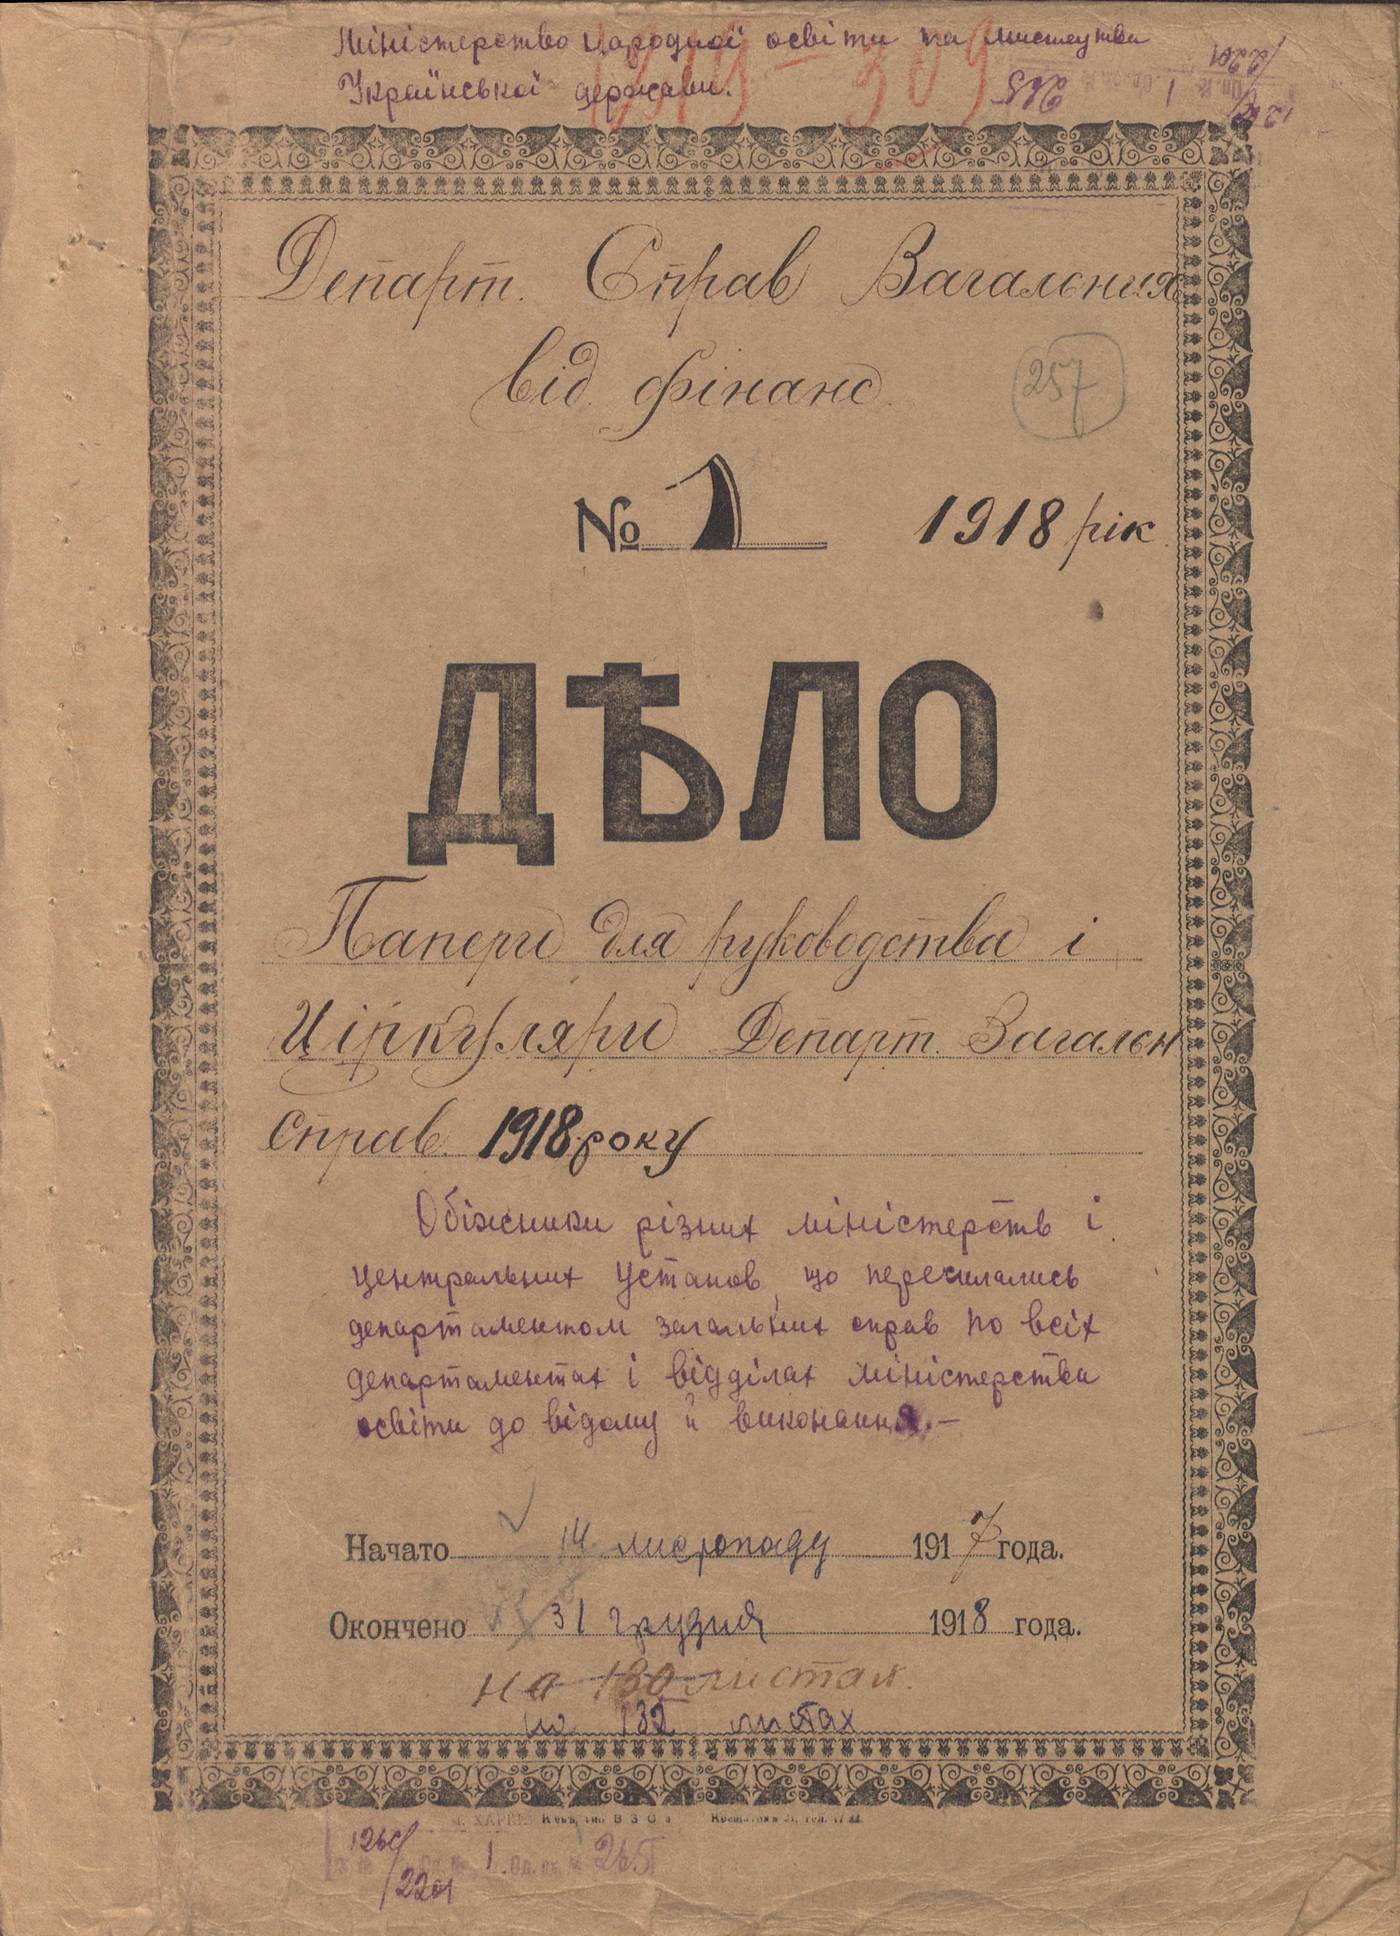 Міністерство народної освіти та мистецтва
Української держави.
265
1
Департ. Справ Загальних
від. фінанс.
257
№ 1 1918 рік
ДѢЛО
Папери для руководства і
Ціркуляри Департ. Загальн
Справ. 1918 року
Обіжники різних міністерств і
центральних установ, що пересилались
департаментом загальних справ по всіх
департаментах і відділах міністерства
освіти до відому й виконання.—
Начато 14 листопаду 1917 года.
Окончено 31 грудня 1918 года.
на 130 листах
на 132 листах
1 265
2201